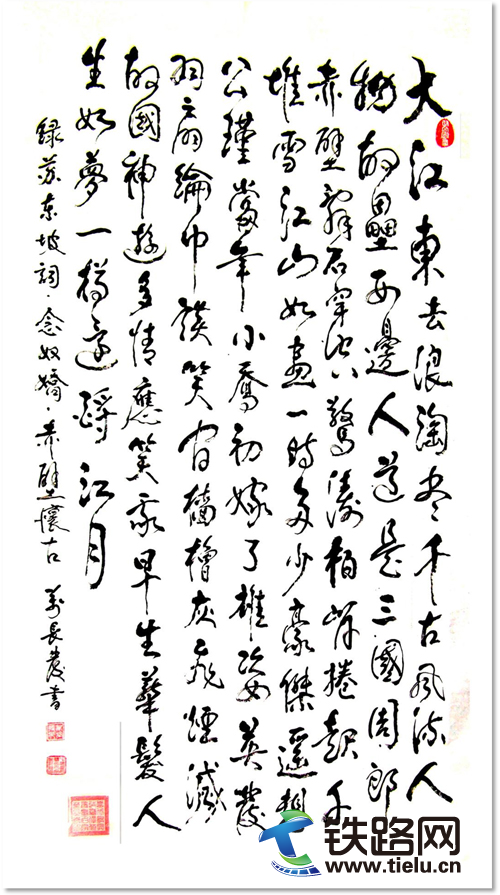 大江東去浪淘尽千古風流人
物故壘西邊人道是三國周郎
赤壁亂石穿空驚濤拍岸捲起千
堆雪江山如畫一時多少豪傑遥想
公瑾當年小喬初嫁了雄姿英發
羽扇綸巾談笑间檣櫓灰飛煙滅
故國神遊多情應笑我早生華髮人
生如夢一樽還酹江月
録苏东坡詞·念奴嬌·赤壁懷古 長書
铁路网
www.tielu.cn